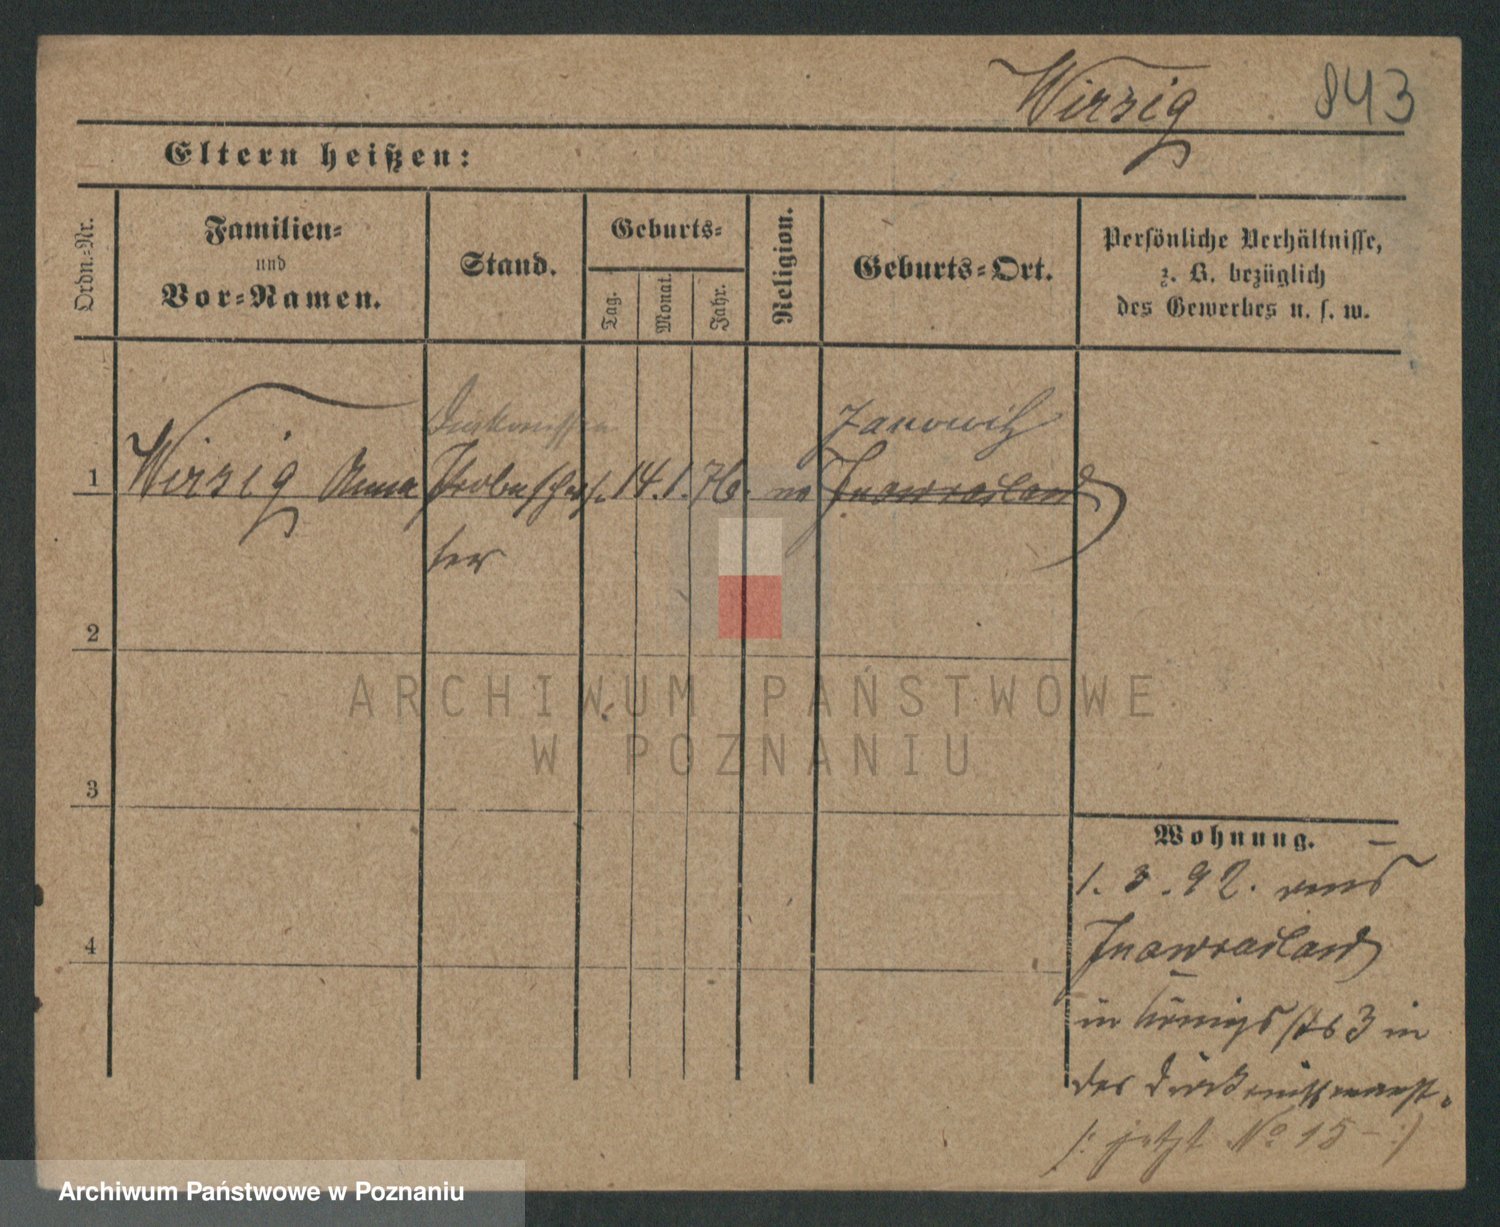 Wirsig 843
Eltern heißen:
Ordn.-Nr.
Familien-
und
Vor-Namen.
Stand.
Geburts-
Tag.
Monat.
Jahr.
Religion.
Geburts-Ort.
Persönliche Verhältnisse,
z. B. bezüglich
des Gewerbes u. s. w.
Diakonissin
Janowitz
1 Wirsig Anna Probeschwes. 14. 1. 76. Inowrazlaw
ter
2
3
4
Wohnung.
1. 3. 92. aus
Inowrazlaw
in Königsstr 3 in
der
/: jetzt No 15 - :/
ARCHIWUM PAŃSTWOWE
W POZNANIU
Archiwum Państwowe w Poznaniu